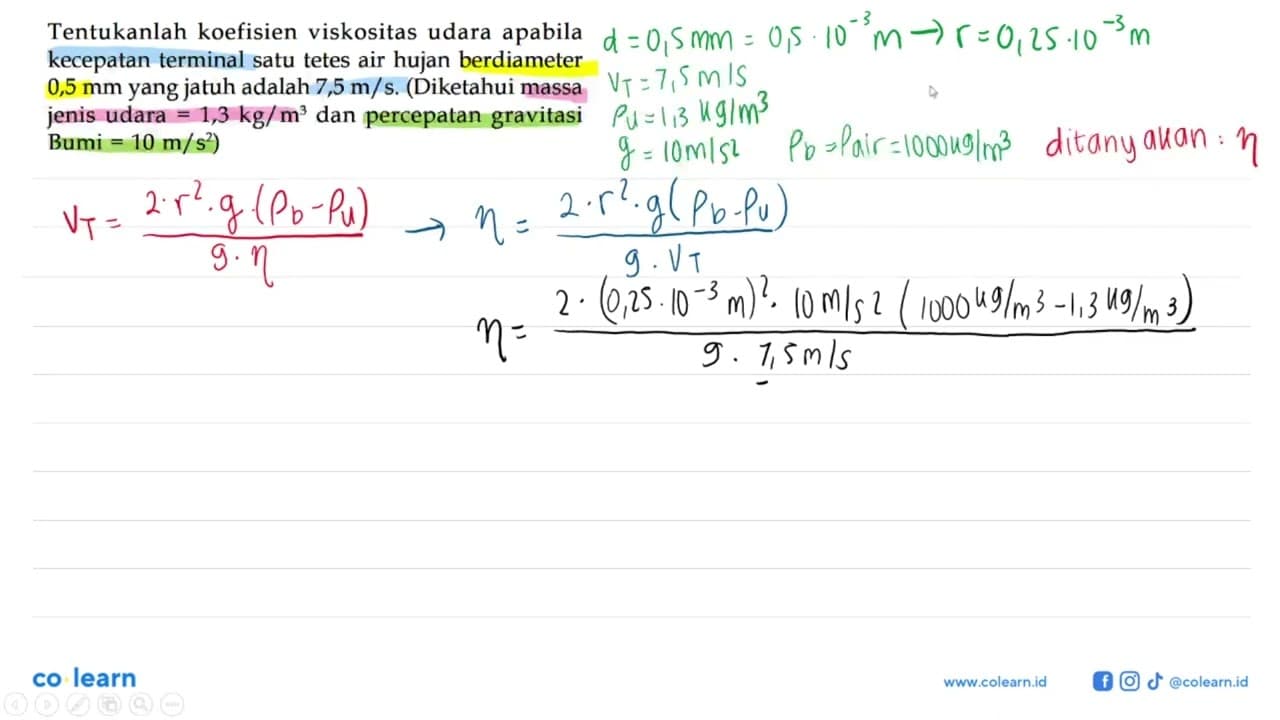 Tentukanlah koefisien viskositas udara apabila
kecepatan terminal satu tetes air hujan berdiameter
0,5 mm yang jatuh adalah 7,5 m/s. (Diketahui massa
jenis udara = 1,3 kg/m³ dan percepatan gravitasi
Bumi = 10 m/s²)
d = 0,5 mm = 0,5 · 10⁻³ m → r = 0,25 · 10⁻³ m
v_T = 7,5 m/s
ρ_u = 1,3 kg/m³
g = 10 m/s² ρ_b = ρ_air = 1000 kg/m³ ditanyakan : η
v_T = 2 · r² · g · (ρ_b - ρ_u) / 9 · η → η = 2 · r² · g (ρ_b - ρ_u) / 9 · v_T
η = 2 · (0,25 · 10⁻³ m)² · 10 m/s² (1000 kg/m³ - 1,3 kg/m³) / 9 · 7,5 m/s
co learn
www.colearn.id
@colearn.id